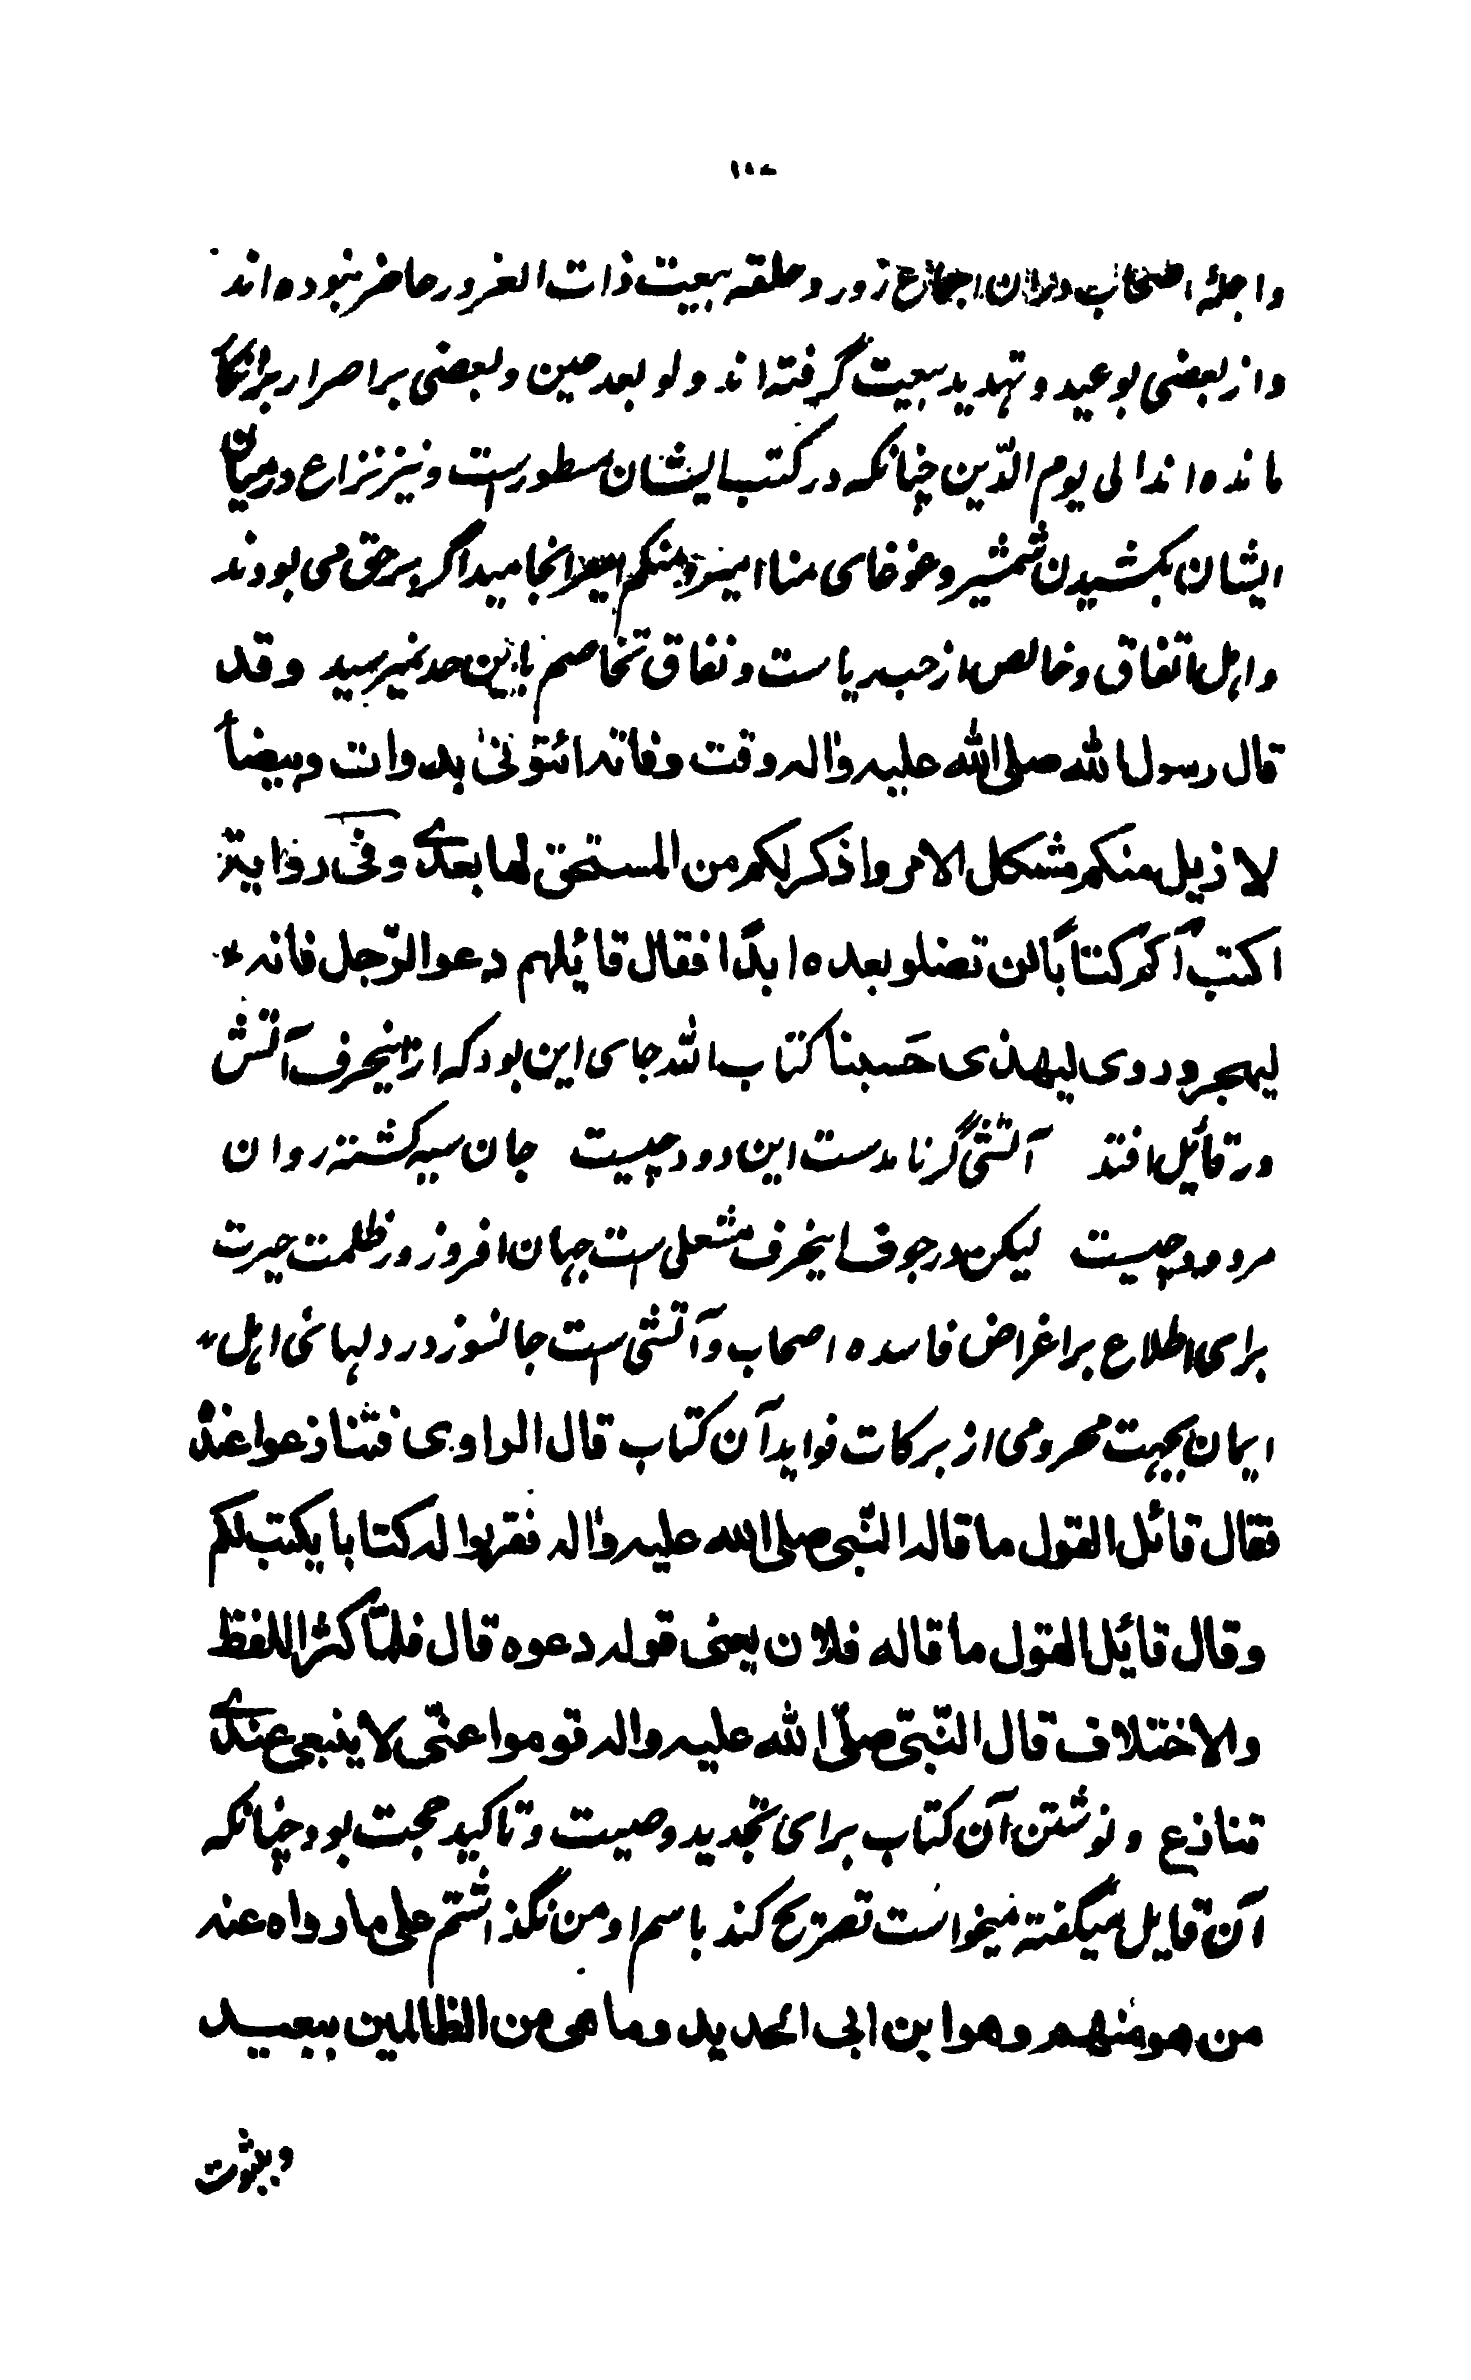 واجلهٔ اصحاب دران اجماع زور و حلقه بیعت ذات الغرور حاضر نبوده اند
و از بعضی بوعید و تهدید بیعت گرفته اند ولو بعد حین و بعضی بر اصرار بر انکا
مانده اند الی یوم الدّین چنانکه در کتب ایشان مسطورست و نیز نزاع درمیان
ایشان بکشیدن شمشیر و غوغای منا امیر و منکم امیر انجامید اگر بر حق می بودند
و اهل اتفاق و خالص از حب ریاست و نفاق تخاصم باین حد نمیرسید وقد
قال رسول الله صلی الله علیه واله وقت وفاته ائتونی بدوات و بیضأ
لا ذیل منکم مشکل الامر واذکر لکم من المستحق لها بعدی وفی روایة
اکتب لکم کتابًا لن تضلو بعده ابدًا فقال قایٔلهم دعو الرّجل فانه
لیهجر و روی لیهذی حَسبنا کتاب الله جای این بود که ازینحرف آتش
در قایٔل افتد آتشی گر نامدست این دود چیست جان سیه گشته روان
مردود چیست لیکن در جوف اینحرف مشعلی ست جهان افروز در ظلمت حیرت
برای اطلاع بر اغراض فاسده اصحاب و آتشی ست جانسوز در دلهائی اهل
ایمان بجهت محرومی از برکات فواید آن کتاب قال الراوی فتنازعوا عنده
فقال قائل القول ما قاله النّبی صلی الله علیه واله فقربوا له کتابا یکتب لکم
وقال قایٔل القول ما قاله فلان یعنی قوله دعوه قال فلمّا کثر اللفظ
والاختلاف قال النّبیّ صلّی الله علیه واله قوموا عنّی لا ینبغی عندی
تنازع و نوشتن آن کتاب برای تجدید وصیت و تاکید حجت بود چنانکه
آن قایل میگفته میخواست تصریح کند باسم او من نگذاشتم علی ما رواه عنه
من هو منهم وهو ابن ابی الحدید وما هی من الظالمین ببعید
و بثبوت